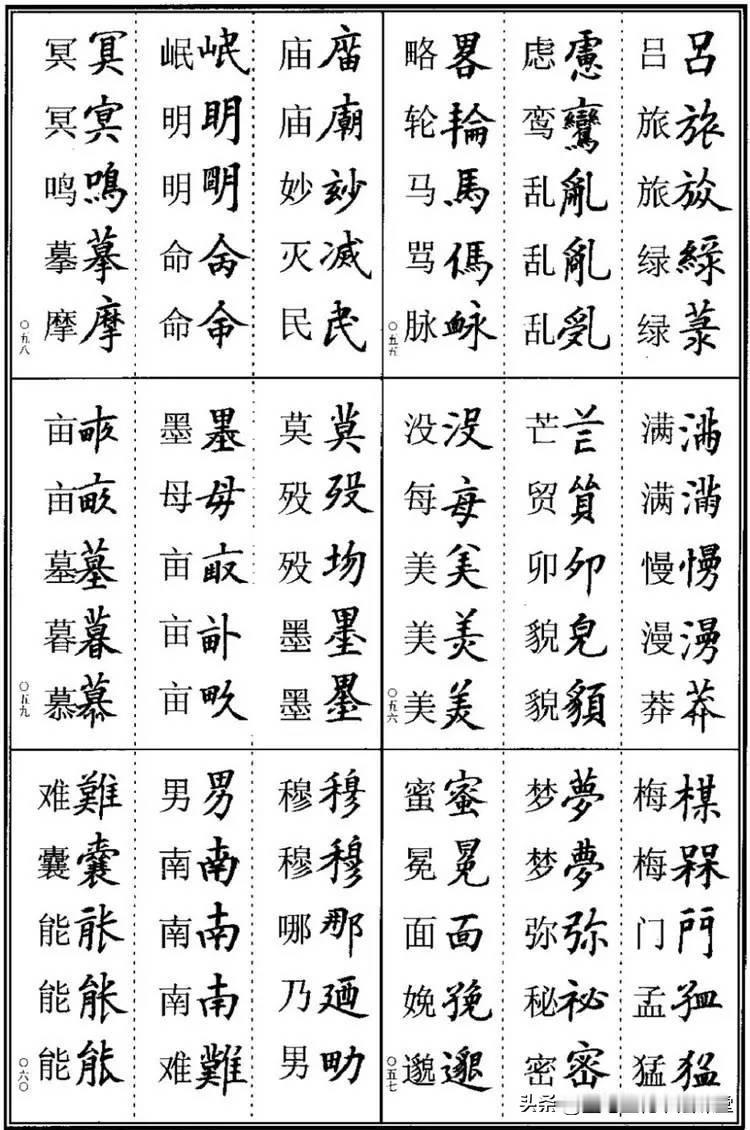 吕吕
旅旅
旅
绿綠
绿菉
虑慮
鸾鸞
乱亂
乱亂
乱乿
略畧
轮輪
马馬
骂傌
脉䘑
〇五五
满满
满滿
慢慢
漫漫
莽莽
芒芒
贸貿
卯卯
貌皃
貌䫉
没没
每每
美美
美美
美美
〇五六
梅楳
梅槑
门門
孟
猛猛
梦夢
梦夢
弥弥
秘祕
密密
蜜蜜
冕冕
面面
娩㝃
邈邈
〇五七
庙庿
庙廟
妙玅
灭减
民民
岷岷
明明
明朙
命命
命命
冥冥
冥冥
鸣鳴
摹摹
摩摩
〇五八
莫莫
殁殁
殁歾
墨墨
墨墨
墨墨
母母
亩畞
亩
亩畂
亩
亩畝
墓墓
暮暮
慕慕
〇五九
穆穆
穆穆
哪那
乃廼
男
男男
南南
南南
南南
难難
难難
囊囊
能能
能能
能能
〇六〇
头条